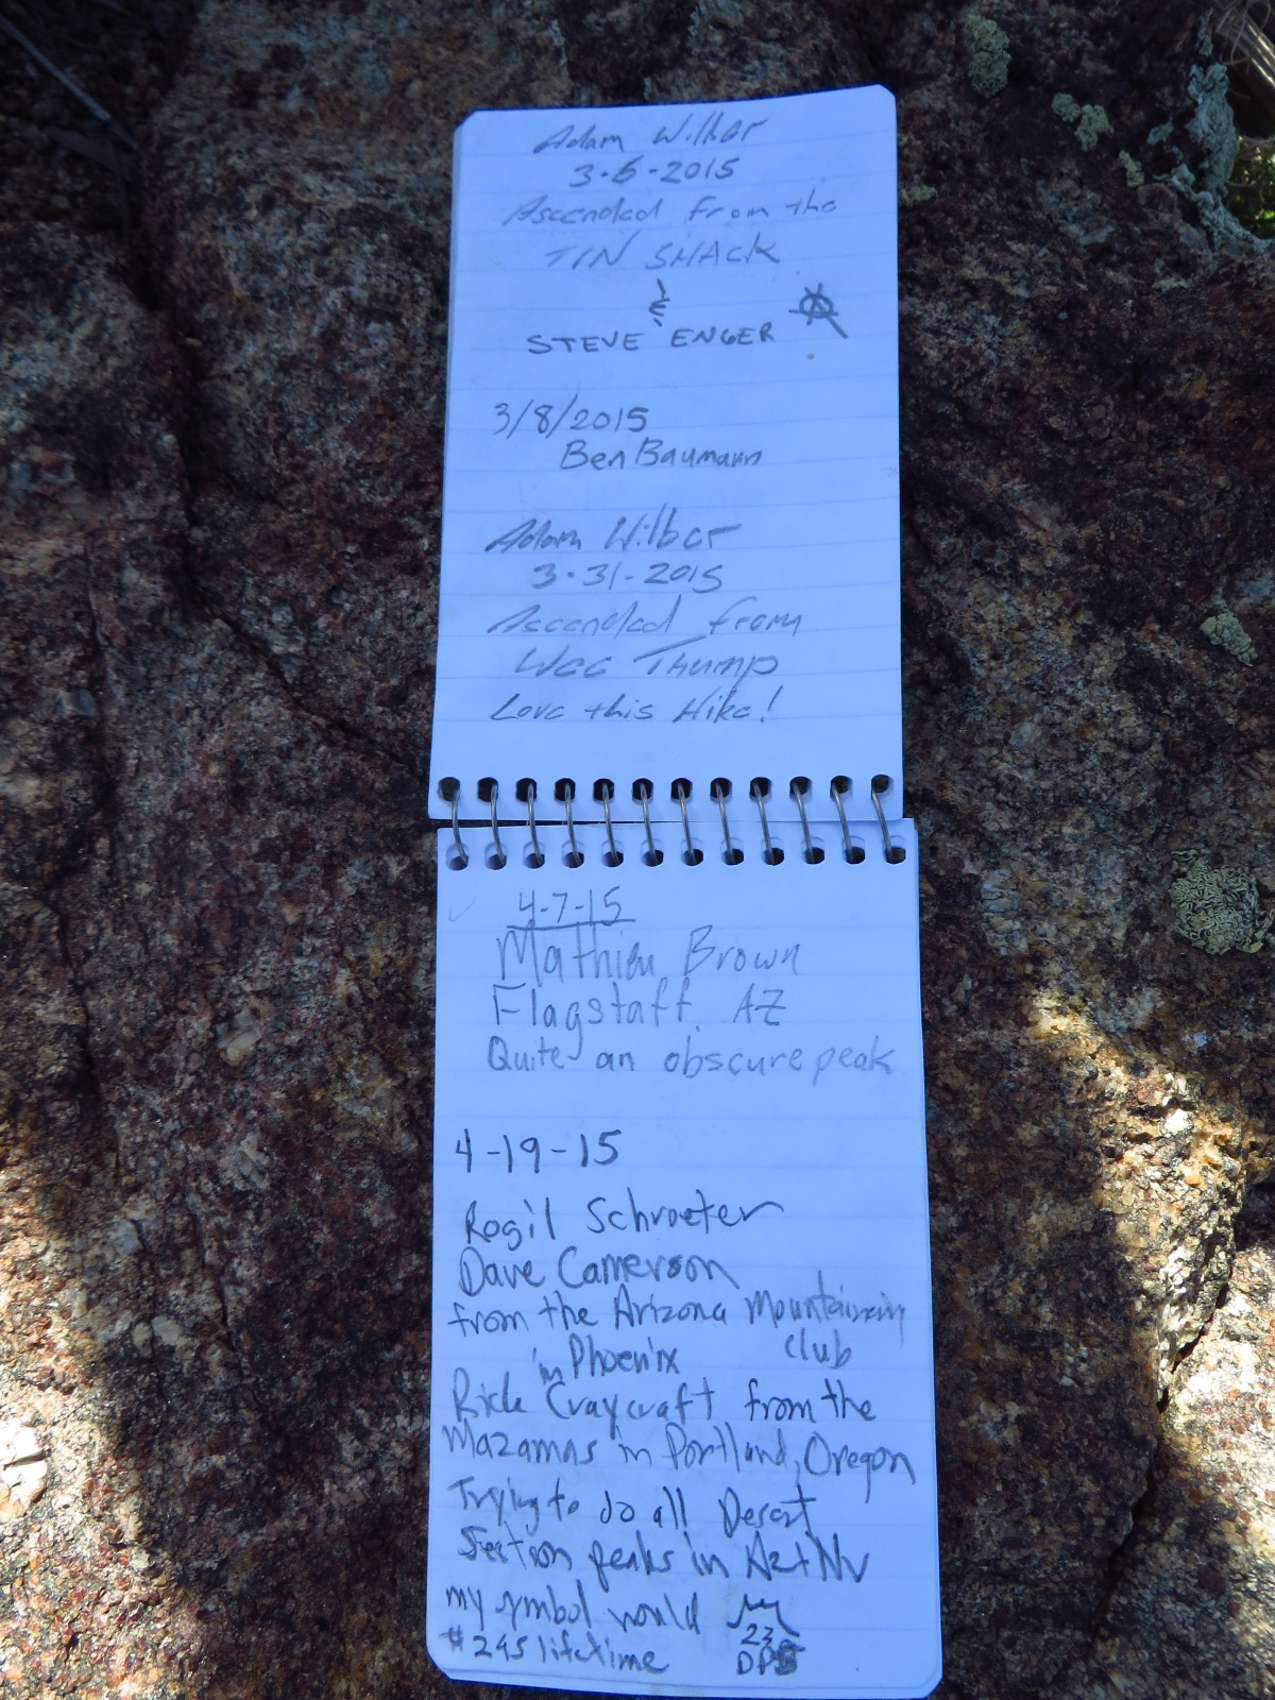 Adam Wilber
3-6-2015
Ascended from the
TIN SHACK
&
STEVE ENGER
3/8/2015
Ben Baumann
Adam Wilber
3-31-2015
Ascended from
Wee Thump
Love this Hike!
4-7-15
Mathieu Brown
Flagstaff, AZ
Quite an obscure peak
4-19-15
Rogil Schroeter
Dave Camerson
from the Arizona Mountaineering
in Phoenix Club
Rick Craycraft from the
Mazamas in Portland, Oregon
Trying to do all Desert
Section peaks in Az + NV
my symbol would
#245 lifetime
23
DPS